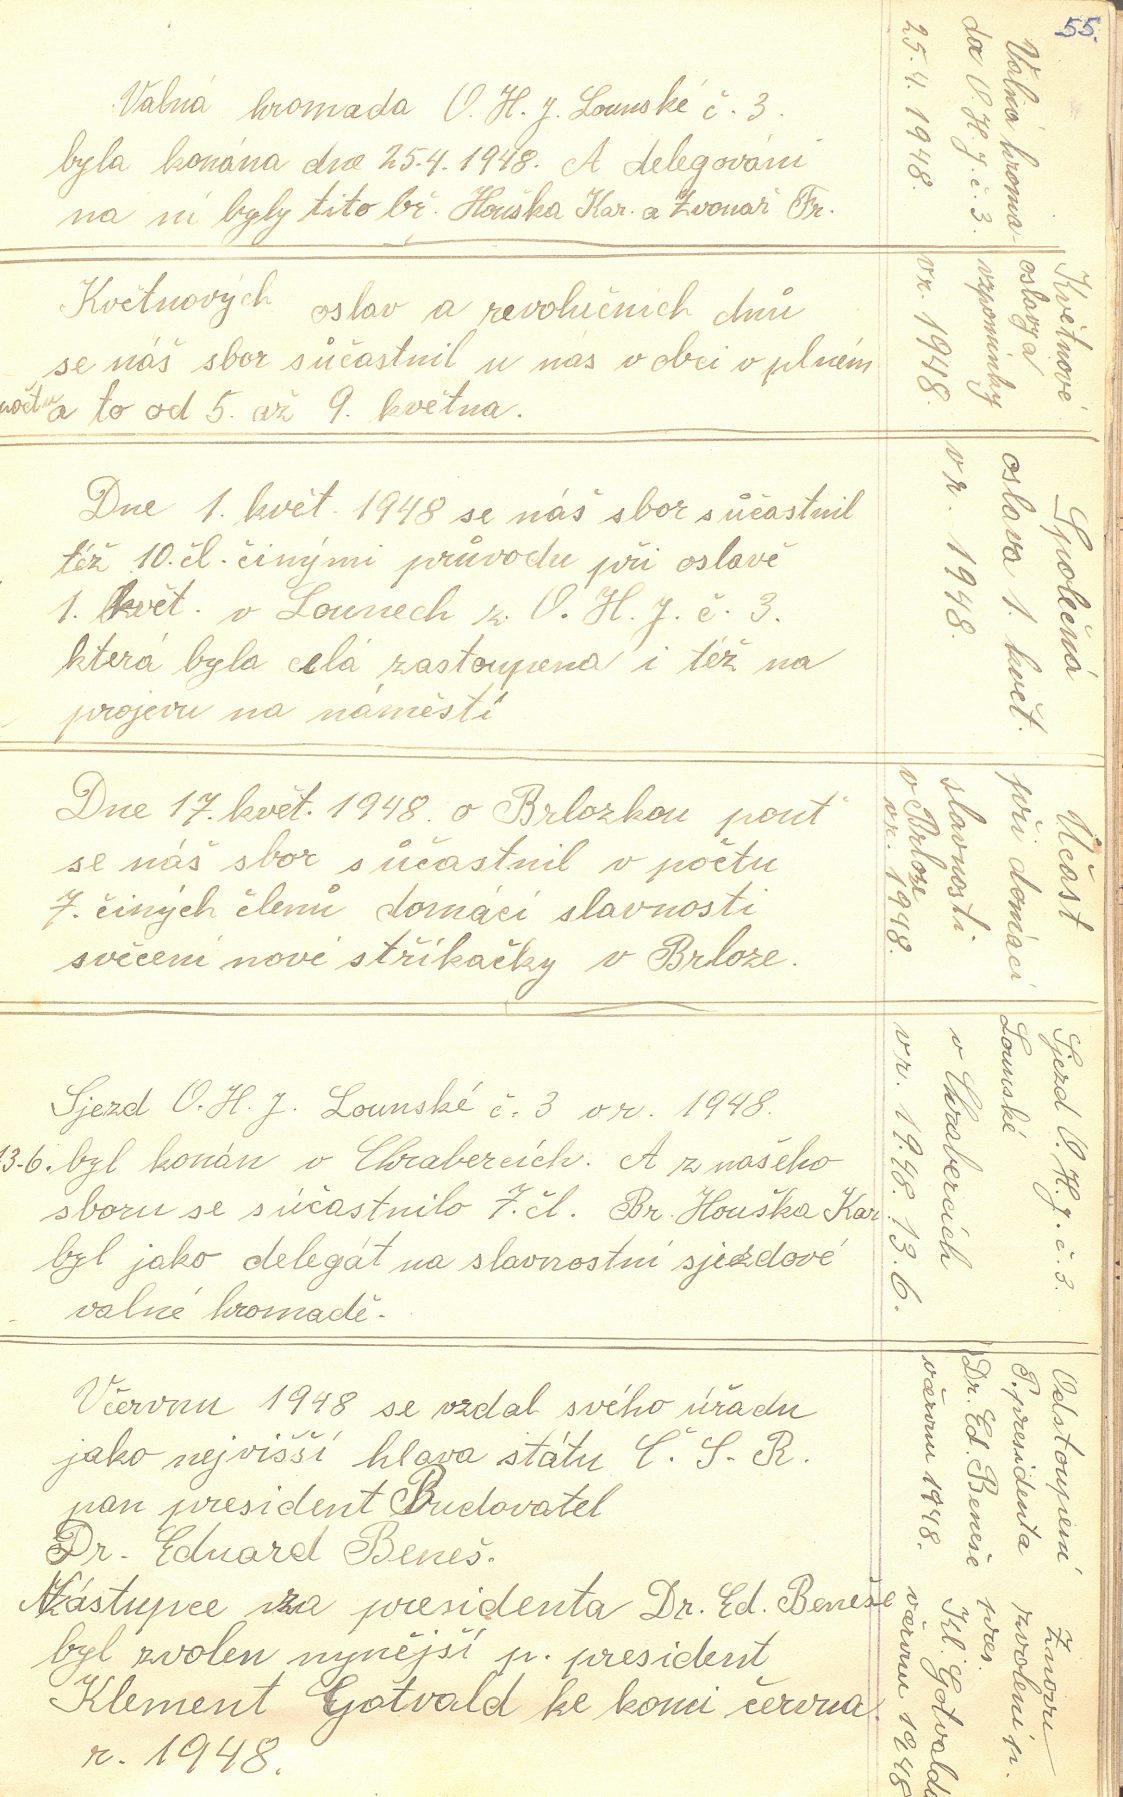 55.
Valná hromada O. H. J. Lounské č. 3.
byla konána dne 25.4.1948. A delegováni
na ni byly tito bř. Houška Kar. a Zvonař Fr.
Valná hroma-
da O H J. č. 3.
25. 4. 1948.
Květnových oslav a revolučních dnů
se náš sbor súčastnil u nás v obci v plném
počtu a to od 5. až 9. května.
Květnové
oslavy a
vzpomínky
v r. 1948.
Dne 1. květ. 1948 se náš sbor sůčastnil
též 10. čl. činými průvodu při oslavě
1. květ. v Lounech z. O. H. J. č. 3.
která byla celá zastoupena i též na
projevu na náměstí
Společná
oslava 1. květ.
v r. 1948.
Dne 17. květ. 1948. o Brlozkou pout
se náš sbor sůčastnil v počtu
7. činých členů domácí slavnosti
svěcení nové stříkačky v Brloze.
Účast
při domácí
slavnosti
v Brloze
v r. 1948.
Sjezd O. H. J. Lounské č. 3 v r. 1948.
13-6. byl konán v Chrabercích. A z našeho
sboru se súčastnilo 7. čl. Br. Houška Kar.
byl jako delegát na slavnostní sjezdové
valné hromadě.
Sjezd O. H. J. č. 3.
Lounské
v Chrabercích
v r. 1948. 13. 6.
Včervnu 1948 se vzdal svého úřadu
jako nejvišší hlava státu Č. S. R.
pan president Budovatel
Dr. Eduard Beneš.
Zástupce za presidenta Dr. Ed. Beneše
byl zvolen nynější p. president
Klement Gotvald ke konci června.
r. 1948.
Odstoupení
P. presidenta
Dr. Ed. Beneše
včervnu 1948.
zvolení p.
pres.
Kl. Gotvalda
včervnu 1948